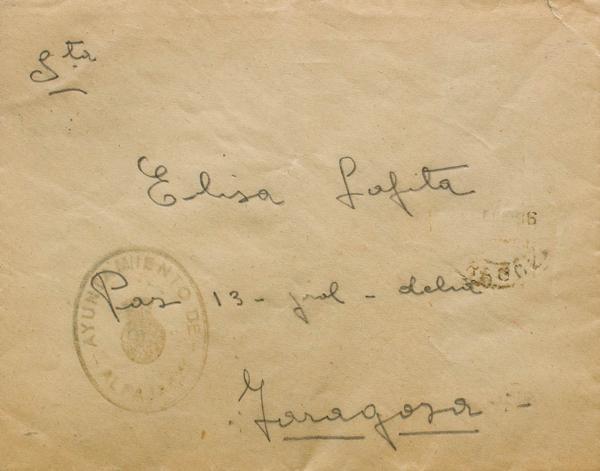 Sta
Elisa Lafita
Paz 13 - pral - dcha
Zaragoza -
AYUNTAMIENTO DE